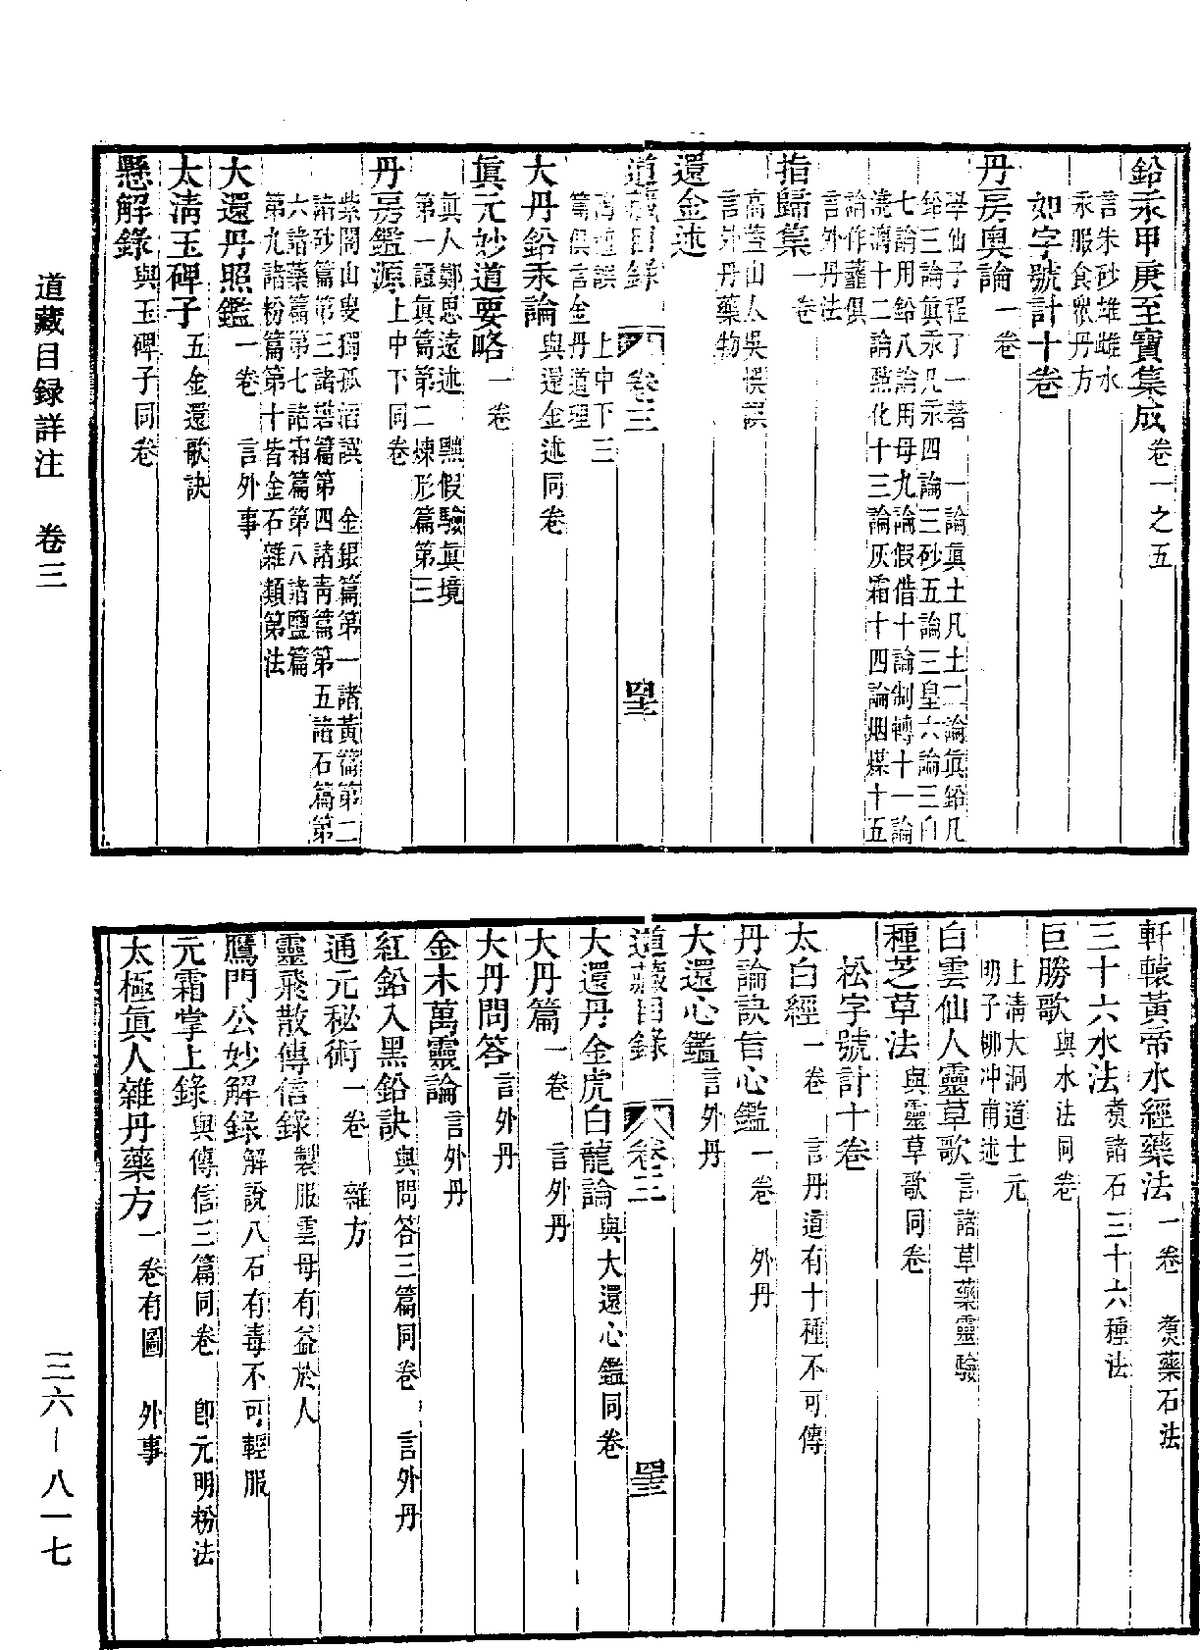 鉛汞甲庚至寶集成卷一之五
言朱砂雄雌水
汞服食眾丹方
如字號計十卷
丹房奧論一卷
學仙子程了一著　一論眞土凡土二論眞鉛凡
鉛三論眞汞凡汞四論三砂五論三皇六論三白
七論用鉛八論用母九論假借十論制轉十一論
澆淋十二論點化十三論灰霜十四論烟煤十五
論作蘁俱
言外丹法
指歸集一卷
高葢山人吳悞誤
言外丹藥物
還金述
道藏目錄　卷三
陶植誤　上中下三
篇俱言金丹道理
大丹鉛汞論與還金述同卷
眞元妙道要略一卷
眞人鄭思遠述　黜假驗眞境
第一證眞篇第二煉形篇第三
丹房鑑源上中下同卷
紫閣山叟獨孤滔誤　金銀篇第一諸黃篇第二
諸砂篇第三諸礬篇第四諸靑篇第五諸石篇第
六諸藥篇第七諸霜篇第八諸鹽篇
第九諸粉篇第十皆金石雜類第法
大還丹照鑑一卷　言外事
太淸玉碑子五金還歌訣
懸解錄與玉碑子同卷
軒轅黃帝水經藥法一卷　煑藥石法
三十六水法煑諸石三十六種法
巨勝歌與水法同卷
上淸大洞道士元
明子柳冲甫述
白雲仙人靈草歌言諸草藥靈驗
種芝草法與靈草歌同卷
松字號計十卷
太白經一卷　言丹道有十種不可傳
丹論訣旨心鑑一卷　外丹
大還心鑑言外丹
道藏目錄　卷三
大還丹金虎白龍論與大還心鑑同卷
大丹篇一卷　言外丹
大丹問答言外丹
金木萬靈論言外丹
紅鉛入黑鉛訣與問答三篇同卷　言外丹
通元秘術一卷　雜方
靈飛散傳信錄製服雲母有益於人
鴈門公妙解錄解說八石有毒不可輕服
元霜掌上錄與傳信三篇同卷　卽元明粉法
太極眞人雜丹藥方一卷有圖　外事
道藏目錄詳注　卷三
三六—八一七